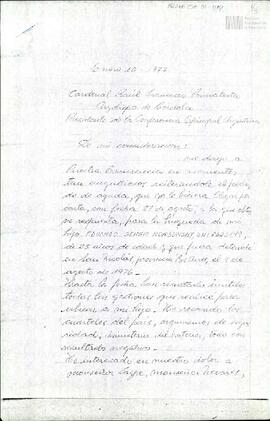 Enero 10 - 1977
Cardenal Raúl Francisco Primatesta
Arzobispo de Córdoba
Presidente de la Conferencia Episcopal Argentina
De mi consideración:
me dirijo a
Vuestra Eminencia en momentos
tan angustiosos reiterándole el pedido
de ayuda, que ya le hiciera llegar por
carta, con fecha 27 de agosto, y la que esta
se requería, para la búsqueda de mi
hijo EDUARDO SERGIO
de 25 años de edad y que fuera detenido
en San Nicolás, provincia Bs. Aires, el 5 de
agosto de 1976.
Hasta la fecha han resultado inútiles
todas las gestiones que realicé para
ubicar a mi hijo. He recorrido los
cuarteles del país, organismos de segu
ridad, ministerio del interior, todo con
resultado negativo.
He interesado en nuestro dolor a
monseñor Laise, monseñor